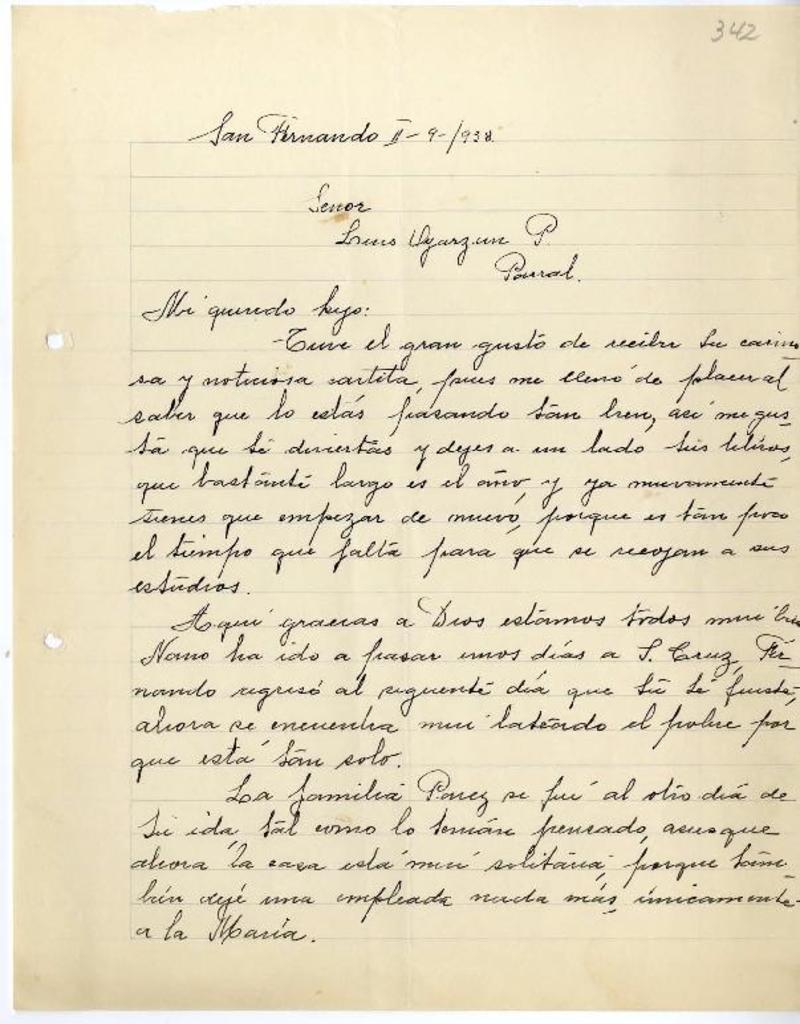 342
San Fernando II-9-/938
Señor
Luis Oyarzun P.
Parral.
Mi querido hijo:
-Tuve el gran gusto de recibir tu cariño
sa y noticiosa cartita, pues me llenó de placer al
saber que lo estás pasando tan bien, así me gus_
ta que te diviertas y dejes a un lado tus libros,
que bastante largo es el año, y ya nuevamente
tienes que empezar de nuevo, porque es tan poco
el tiempo que falta para que se recojan a sus
estudios.
Aquí gracias a Dios estamos todos mui bien
Nano ha ido a pasar unos días a S. Cruz, Fer_
nando regresó al siguiente día que tú te fuiste,
ahora se encuentra mui lateado el pobre por
que está tan solo.
La familia Parez se fué al otro día de
tu ida, tal como lo tenían pensado, asi es que
ahora la casa está mui solitaria, porque tam_
bién dejé una empleada nada más, únicamente
a la María.